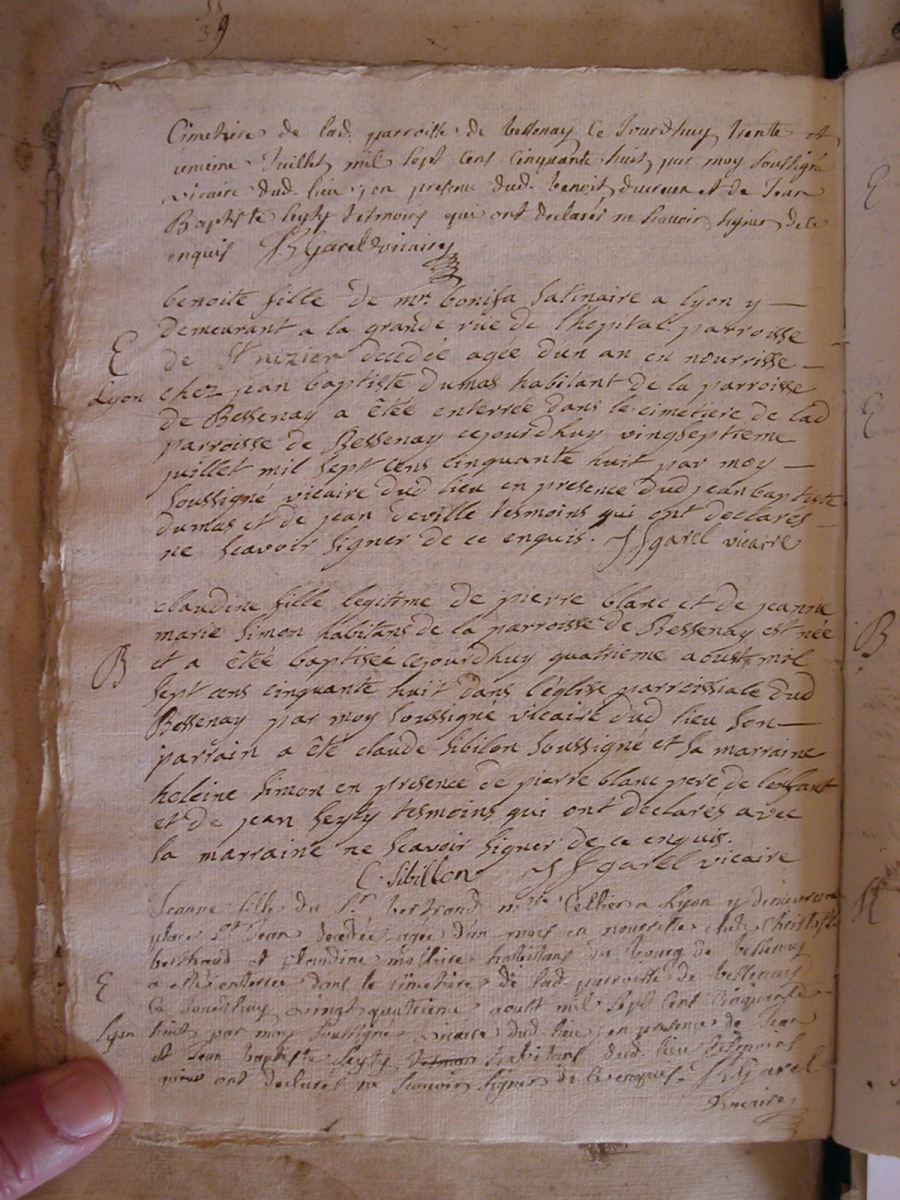 39
Cimetiere de lad. parroisse de bessenay ce Jourdhuy trente et
unieme Juillet mil sept cens cinquante huit par moy soussigné
vicaire dud. lieu en presence dud. benoit et de Jean
Baptiste Seyty tesmoins qui ont declarés ne scavoir signer de ce
enquis JJ Garel vicaire
benoite fille de mr. bonifa satinaire a lyon y
demeurant a la grande rue de lhopital parroisse
E
de St nizier decedée agée dun an en nourrisse
Lyon
chez jean baptiste dumas habitant de la parroisse
de Bessenay a êtée enterrée dans le cimetiere de lad
parroisse de Bessenay cejourdhuy vingseptieme
juillet mil sept cens cinquante huit par moy
soussigné vicaire dud lieu en presence dud jean baptiste
dumas et de jean deville tesmoins qui ont declares
ne scavoir signer de ce enquis. JJ garel vicaire
claudine fille legitime de pierre blanc et de jeanne
marie simon habitans de la parroisse de Bessenay est née
B
et a êtée baptisée cejourdhuy quatrieme aoust mil
sept cens cinquante huit dans léglise parroissiale dud
Bessenay par moy soussigné vicaire dud lieu son
parrain a été claude sibilon soussigné et sa marraine
heleine simon en presence de pierre blanc pere de lenfant
et de jean seyty tesmoins qui ont declares avec
la marraine ne scavoir signer de ce enquis.
C. Sibillon JJ garel vicaire
Jeanne fille du Sr. bertrand me. Cellier a Lyon y demeurant
place St. Jean decedée agée d'un mois en nourrisse chez Christophe
berthaud et Claudine habitans du bourg de bessenay
E
a esté enterree dans le cimetiere de lad. parroisse de bessenay
ce Jourdhuy vingt quatrieme aoust mil sept cent cinquante
Lyon
huit par moy soussigné vicaire dud lieu en presence de Jean
et Jean baptiste Seyty habitans dud. lieu tesmoins
qui ont declarés ne scavoir signer de ce enquis. JJ Garel
vicaire
E
E
B